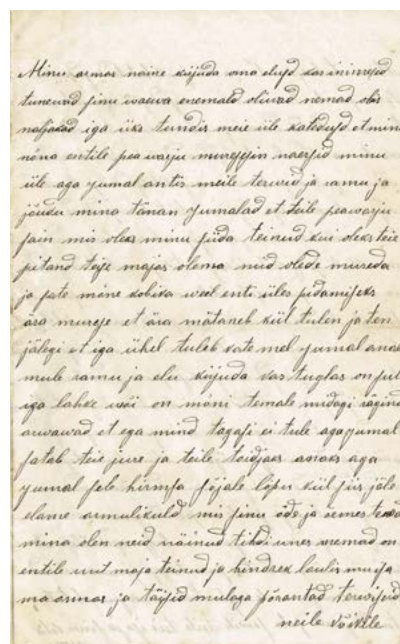 Minu armas naine kirjuda oma elujd kas inimesed
tunewad sinu waewa enemald oliwad nemad
naljakad iga üks tundis meie üle katedust et mina
nõna entile peawarju muretsesin naersid minu
üle aga jumal antis meile terwid ja ramu ja
jõudu mina tänan jumalad et teile peawarju
sain mis oleks minu süda teinud kui oleks teie
pitand teise majas olema nüd olede mureda
ja pate mine kobika weel enti üles pidamiseks
ära muretse et ära mätaneb kül tulen ja ten
jälegi et iga ühel tuleb kate mel jumal anab
mule ramu ja elu kirjuda kas tuglas on jul
iga lahke wõi on mõni temale midagi räginud
arwawad et ega mind tagasi ei tule aga jumal
satab teie jure ja teile toidjaks anaks aga
jumal sele hirmsa sõjale lõpu kül siis jäle
elame armulikuld mis sinu õde ja
mina olen neid näinud tihdi unes wremad on
entile uut maja teinud ja hindrek laulis musga
ma armas ja täijed mulaga sõrantad terwised
neile kõikile